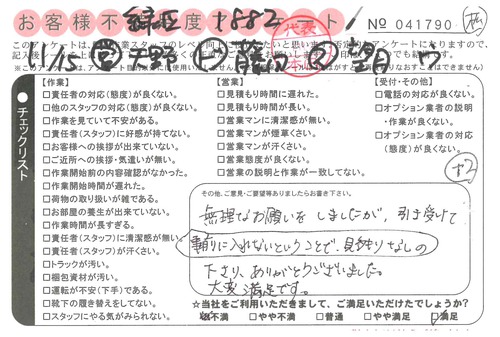 お客様不満足度アンケート
1882
代表
No 041790
このアンケートは、
11/15
天野
チェックリスト
【作業】
□責任者の対応(態度)が良くない。
□他のスタッフの対応(態度)が良くない。
□作業を見ていて不安がある。
□責任者(スタッフ)に好感が持てない。
□お客様への挨拶が出来ていない。
□ご近所への挨拶・気遣いが無い。
□作業開始前の内容確認がなかった。
□作業開始時間が遅れた。
□荷物の取り扱いが雑である。
□お部屋の養生が出来ていない。
□作業時間が長すぎる。
□責任者(スタッフ)に清潔感が無い。
□責任者(スタッフ)が汗くさい。
□トラックが汚い。
□梱包資材が汚い。
□運転が不安(下手)である。
□靴下の履き替えをしてない。
□スタッフにやる気がみられない。
【営業】
□見積もり時間に遅れた。
□見積もり時間が長い。
□営業マンに清潔感が無い。
□営業マンが煙草くさい。
□営業マンが汗くさい。
□営業態度が良くない。
□営業の説明と作業が一致してない。
【受付・その他】
□電話の対応が良くない。
□オプション業者の説明
・作業が良くない。
□オプション業者の対応
(態度)が良くない。
その他、ご意見・ご要望等ありましたらお書き下さい。
無理なお願いをしましたが、引き受けて
事前に入れないということで、見積りなしの
下さり、ありがとうございました。
大変満足です。
☆当社をご利用いただきまして、ご満足いただけたでしょうか?
□不満 □やや不満 □普通 □やや満足 □満足